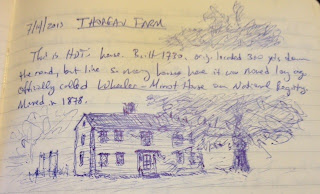 7/4/2013 THOREAU FARM
This is HDT's house. Built 1730, orig. located 300 yds down
the road, but like so many homes here it was moved long ago
officially called Wheeler-Minot House on National Registry.
Moved in 1878.